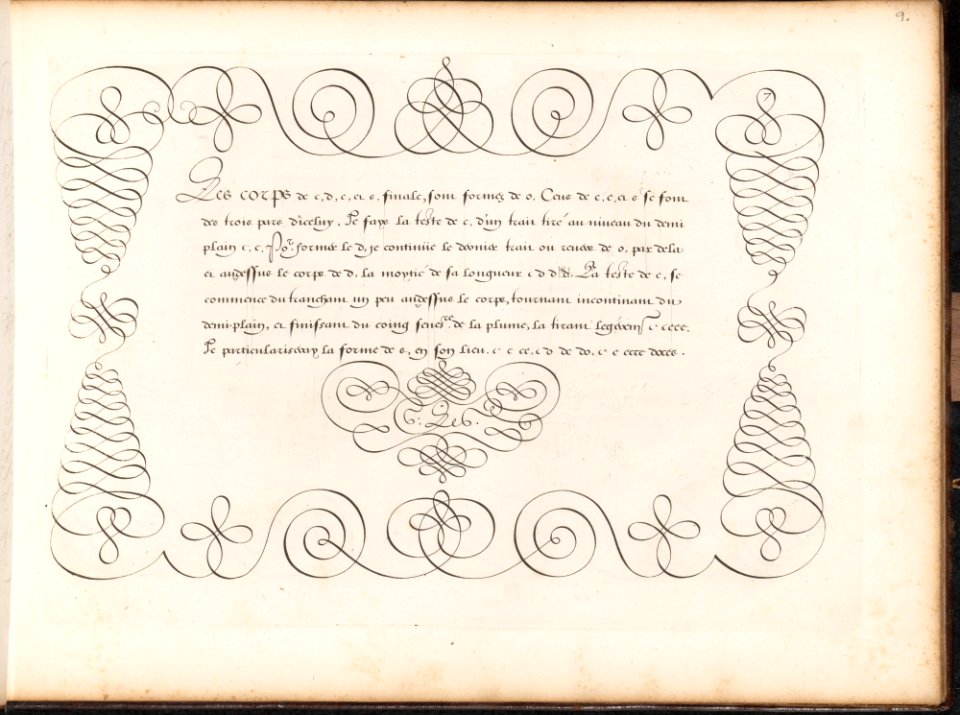 9.
7
Les corps de c, d, e, et s, finale, sont formez de o. Ceus de c, e, et s se font
des trois pars d'iceluy. Je fays la teste de c, d'un trait tiré au niueau du demi
plain c, c, Por former le d, je continüe le dernier trait ou reuers de o, par dela
et audessus le corps de d, la moytié de sa longueur c d d d. La teste de e, se
commence du tranchant un peu audessus le corps, tournant incontinant du
demi-plain, et finissant du coing senestre de la plume, la tirant legérемт c ceee.
Je particulariseray la forme de s, en son lieu. c c ce, c d de do, c e ecce doces.